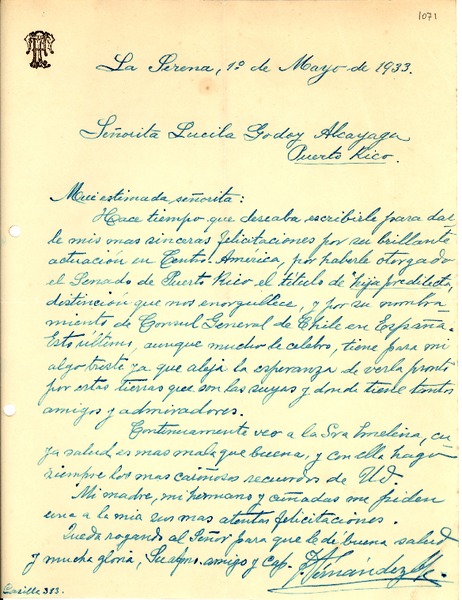 1071
La Serena, 1º de Mayo de 1933.
Señorita Lucila Godoy Alcayaga
Puerto Rico.
Mui estimada señorita:
Hace tiempo que deseaba escribirle para dar-
le mis mas sinceras felicitaciones por su brillante
actuación en Centro América, por haberle otorgado
el Senado de Puerto Rico el título de "hija predilecta,
distinción que nos enorgullece, y por su nombra-
miento de Consul General de Chile en España.
Esto último, aunque mucho lo celebro, tiene para mi
algo triste ya que aleja la esperanza de verla pronto
por estas tierras que son las suyas y donde tiene tantos
amigos y admiradores.
Continuamente veo a la Sra Emelina, cu-
ya salud es mas mala que buena, y con ella hago
siempre los mas cariñosos recuerdos de Ud.
Mi madre, mi hermano y cuñadas me piden
una a la mia sus mas atentas felicitaciones.
Queda rogando al Señor para que le dé buena salud
y mucha gloria, Su afmo. amigo y Cap.
Fernández
Casilla 383.